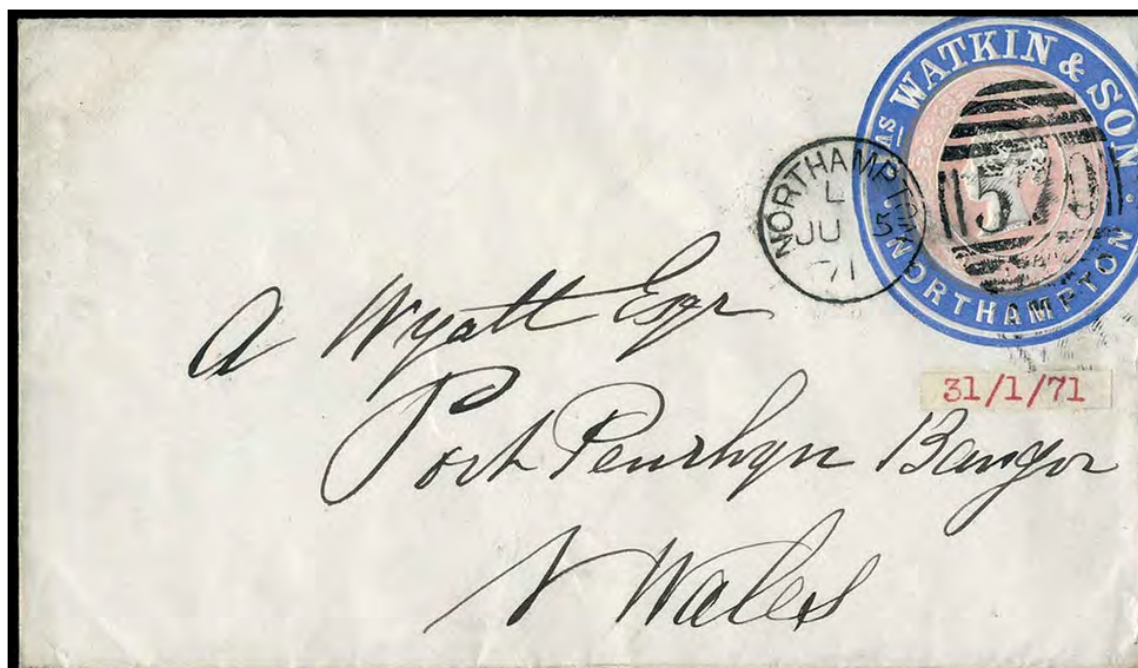 JAS WATKIN & SON
NORTHAMPTON
NORTHAMPTON
L
JU 5
71
570
A Wyatt Esqr
31/1/71
Port Penrhyn Bangor
N Wales